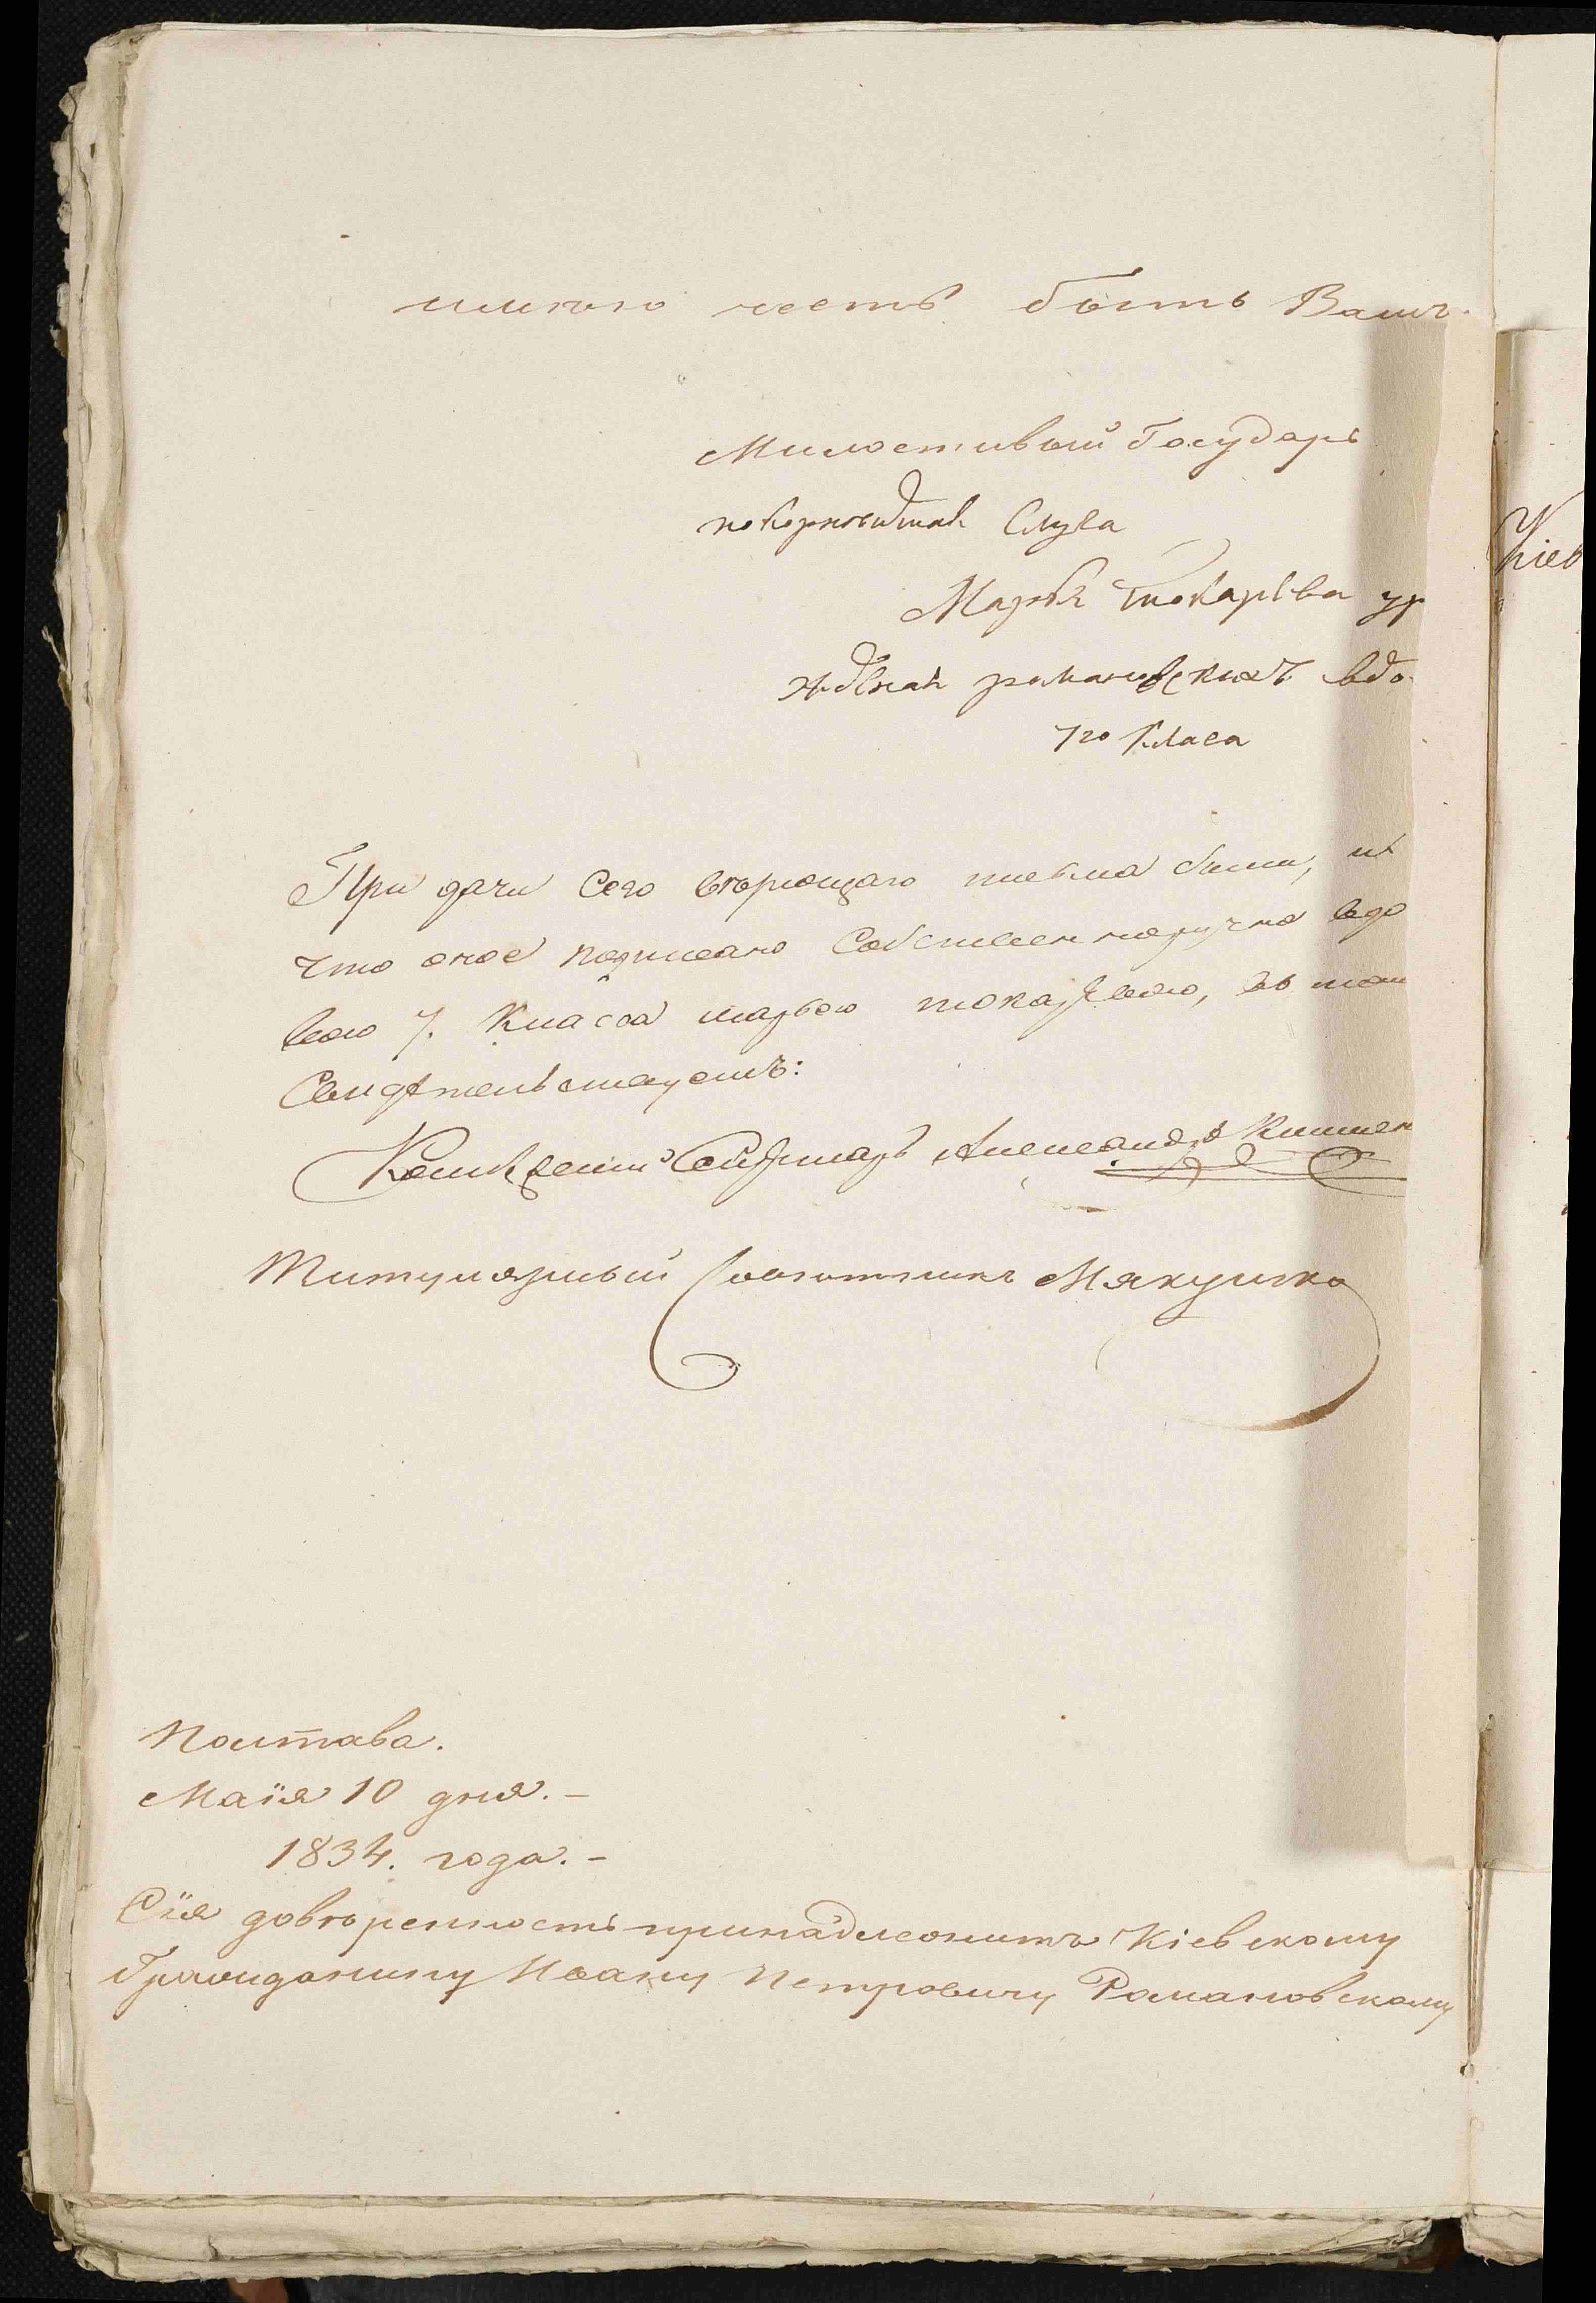 имѣю честь быть Вамъ
Милостивый Государь
покорнѣйшая Слуга
Марья Токарева ур
жденая романовскихъ вдо
7го Класа
При дачи Сего вѣрющаго письма были, и
Что оное подписано Собственноручно вдо
вою 7. Класса марьею токаревою, въ том
Свидетельствуемъ:
Секретарь Александръ
Титулярный Советникъ Мякушко
Полтава.
Маія 10 дня.-
1834. года.-
Сія довѣренность принадлежитъ Кіевскому
Гражданину Ивану Петровичу Романовскому
Кіев